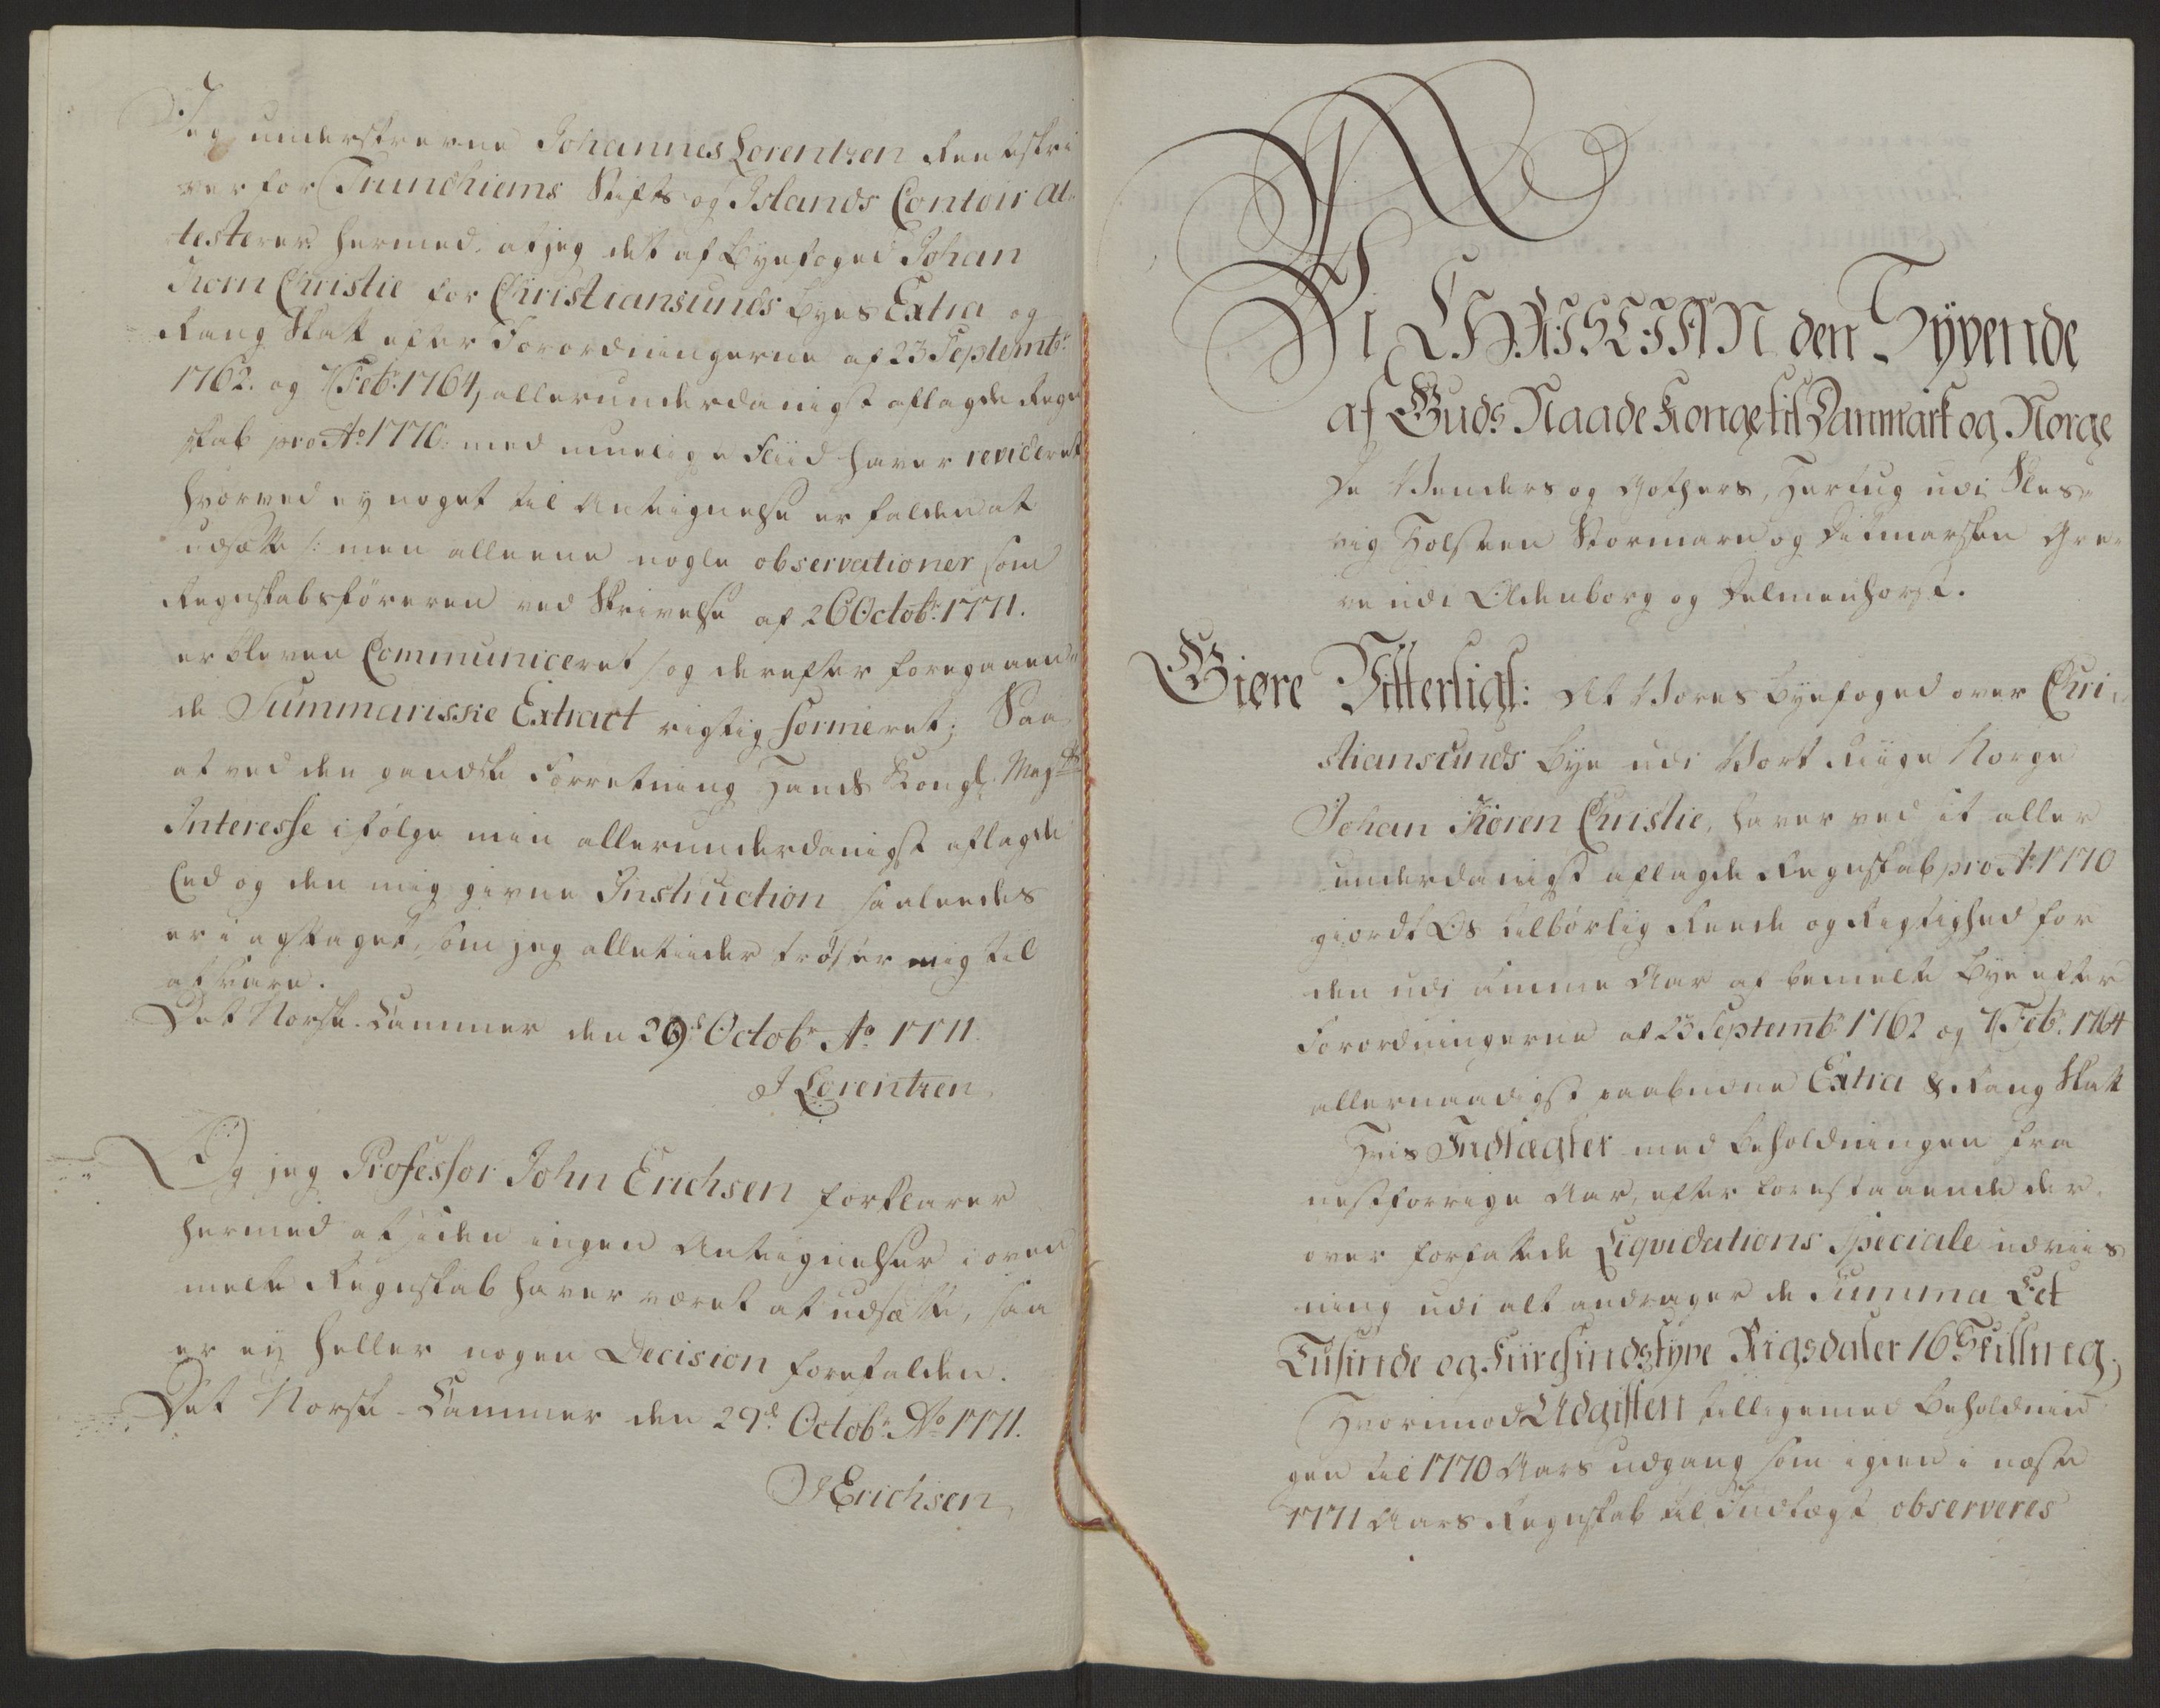 Jeg underskrevne Johannes Lorentzen Renteskri
ver for Trundhiems Stifts og Islands Contoir At-
testerer hermed, at jeg det af Byefoged Johan
Korn Christie for Christiansunds Byes Extra og
Rang Skatt efter Forordningerne af 23 Septembr
1762. og 7 Febr. 1764, allerunderdanigst aflagde Regn
skab pro Ao. 1770. med muelige Fliid haver revideret
hvorved ey noget til Antegnelse er falden at
udsætte /: men alleene nogle observationer som
Regnskabsføreren ved Skrivelse af 26 Octobr. 1771.
er bleven Communiceret /: og derefter foregaaen-
de Summariske Extract rigtig formeret; Saa
at ved den gandske Forretning Hans Kongl. Maysts
Interesse ifølge min allerunderdanigst aflagde
Eed og den mig givne Instruction saaledes
er iagttaget, som jeg alletiider trøster mig til
at svare.
Det Norske Cammer den 29de Octobr. Ao. 1771.
J Lorentzen
Og jeg Professor John Erichsen forklarer
hermed at siden ingen Antegnelser i oven
melte Regnskab haver været at udsætte, saa
er ey heller nogen Decision forefalden.
Det Norske Cammer den 29de Octobr. Ao 1771.
J Erichsen
Vi CHRISTIAN den Syvende
af Guds Naade Konge til Danmark og Norge
De Wenders og Gothers, Hertug udi Sles-
vig Holsteen Stormarn og Ditmarsken Gre-
ve udi Oldenborg og Delmenhorst.
Giøre Vitterligt: At Vores Byefoged over Chri-
stiansunds Bye udi Vort Riige Norge
Johan Koren Christie, haver ved sit aller
underdanigst aflagde Regnskab pro Ao. 1770
giordt Os tilbørlig Reede og Rigtighed for
den udi samme Aar af bemelte Bye efter
Forordningerne af 23 Septembr 1762 og 7 Febr. 1764
allernaadigst paabudne Extra & Rang Skatt
Hvis Indtægter med Beholdningen fra
nestforrige Aar, efter forestaaende der-
over forfattede Liqvidations Speciale udviis
ning udi alt andrager de Summa Eet
Tusinde og Fiiresindstyve Rigsdaler 16 Skilling;
Hvorimod Udgiften tilligemed Beholdnin
gen til 1770 Aars udgang som igien i næste
1771 Aars Regnskab til Indtægt observeres